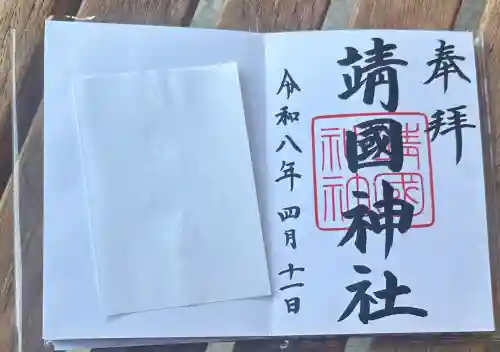 奉拝
靖國神社
靖國神社
令和八年 四月 十一日